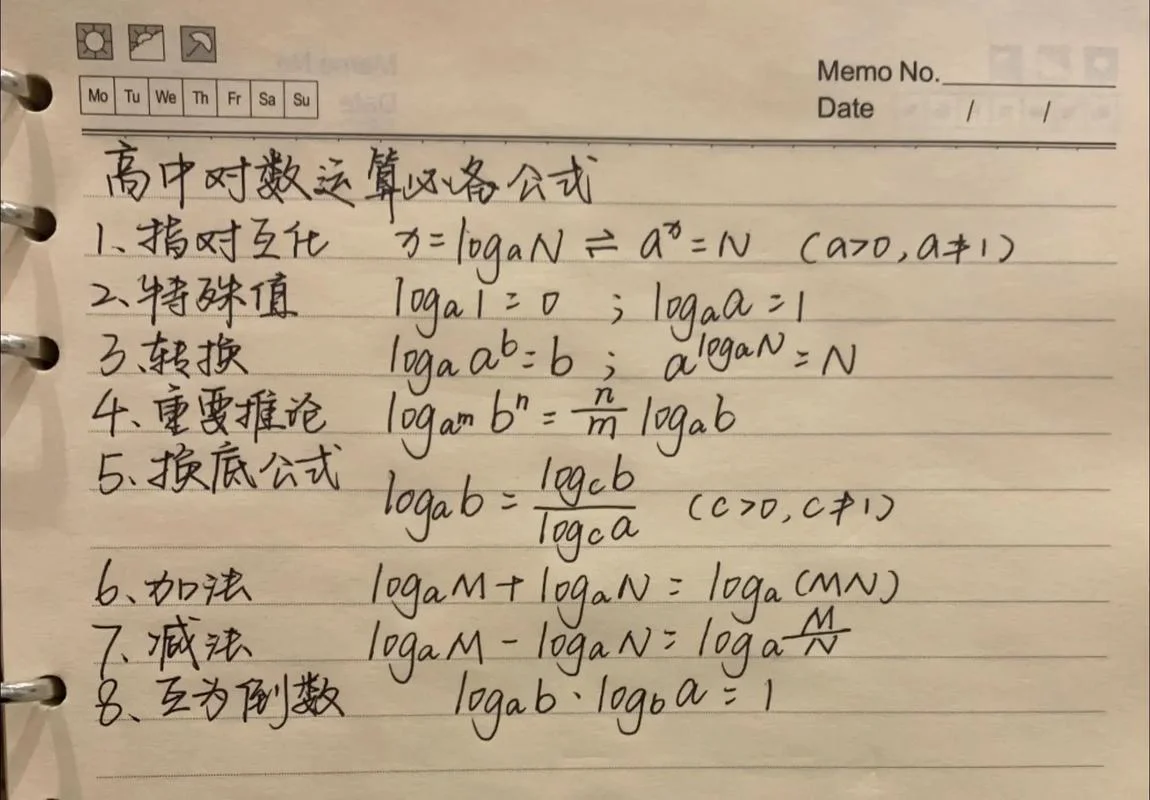 Memo No.
Mo Tu We Th Fr Sa Su
Date / /
高中对数运算必备公式
1、指对互化 x=logₐN ⇌ aˣ=N (a>0,a≠1)
2、特殊值 logₐ1=0 ; logₐa=1
3、转换 logₐaᵇ=b ; a^(logₐN)=N
4、重要推论 log_(aᵐ) bⁿ = n/m logₐb
5、换底公式 logₐb = log_c b / log_c a (c>0,c≠1)
6、加法 logₐM+logₐN=logₐ(MN)
7、减法 logₐM-logₐN=logₐ M/N
8、互为倒数 logₐb·log_b a=1